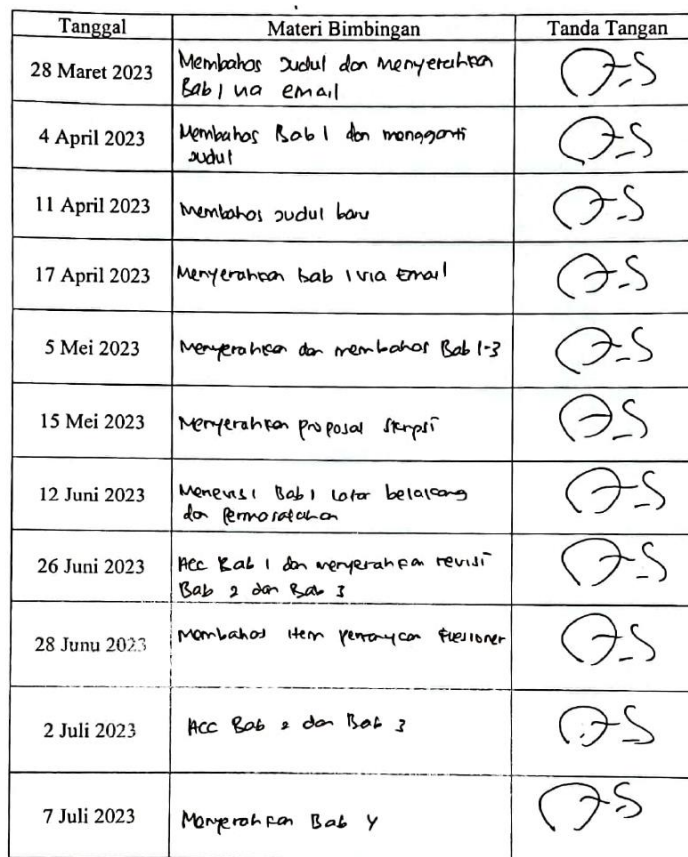 Tanggal Materi Bimbingan Tanda Tangan
28 Maret 2023 Membahas Judul dan menyerahkan
Bab 1 via email
4 April 2023 Membahas Bab 1 dan mengganti
Judul
11 April 2023 Membahas Judul baru
17 April 2023 Menyerahkan bab 1 via Email
5 Mei 2023 Menyerahkan dan membahas Bab 1-3
15 Mei 2023 Menyerahkan proposal skripsi
12 Juni 2023 Merevisi Bab 1 latar belakang
dan Permasalahan
26 Juni 2023 Acc Bab 1 dan menyerahkan revisi
Bab 2 dan Bab 3
28 Junu 2023 Membahas item pertanyaan kuesioner
2 Juli 2023 Acc Bab 2 dan Bab 3
7 Juli 2023 Menyerahkan Bab 4